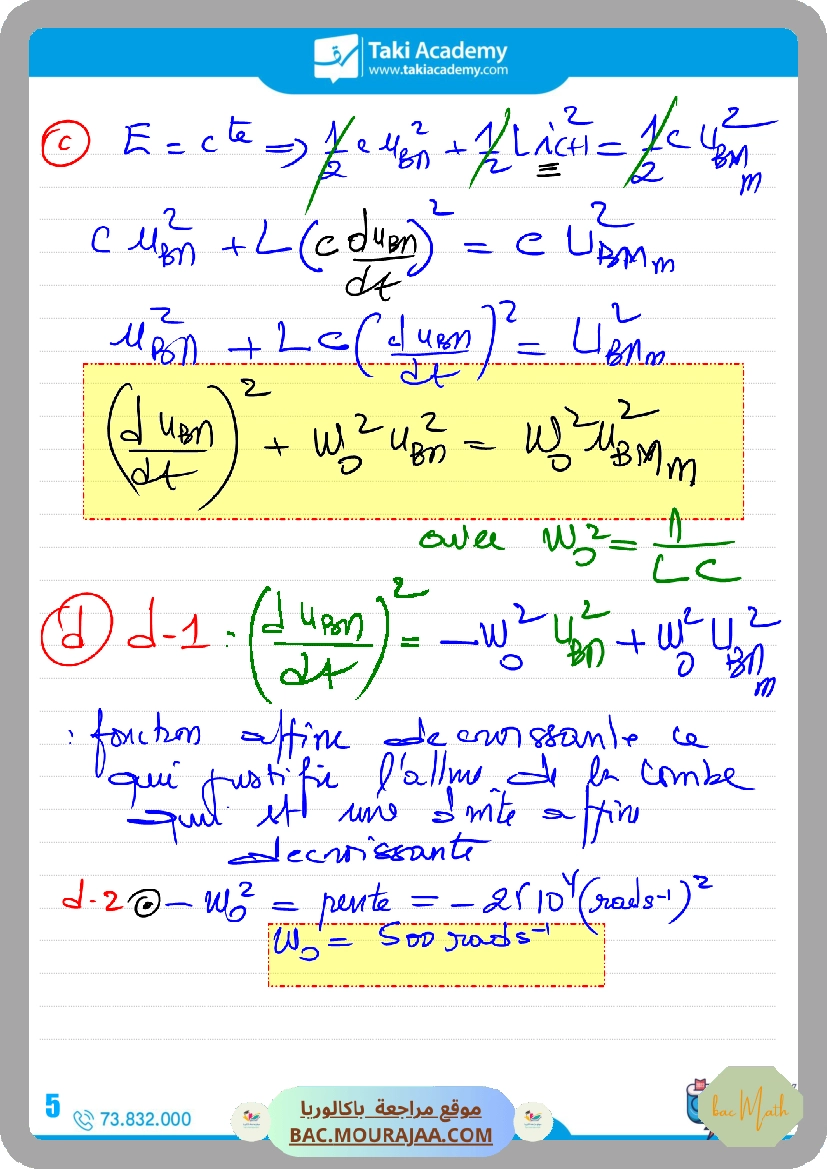 Taki Academy
www.takiacademy.com
c E = cte => 1/2 c u_BM^2 + 1/2 L i(t)^2 = 1/2 c U_BMm^2
c u_BM^2 + L (c du_BM/dt)^2 = c U_BMm^2
u_BM^2 + LC (du_BM/dt)^2 = U_BMm^2
(du_BM/dt)^2 + W_0^2 u_BM^2 = W_0^2 U_BMm^2
avec W_0^2 = 1/LC
d d-1 : (du_BM/dt)^2 = -W_0^2 U_BM^2 + W_0^2 U_BMm^2
: fonction affine decroissante ce
qui justifie l'allure de la combe
qui est une droite affine
decroissante
d-2 - W_0^2 = pente = -25 10^4 (rads-1)^2
W_0 = 500 rads-1
5
73.832.000
موقع مراجعة باكالوريا
BAC.MOURAJAA.COM
bac Math